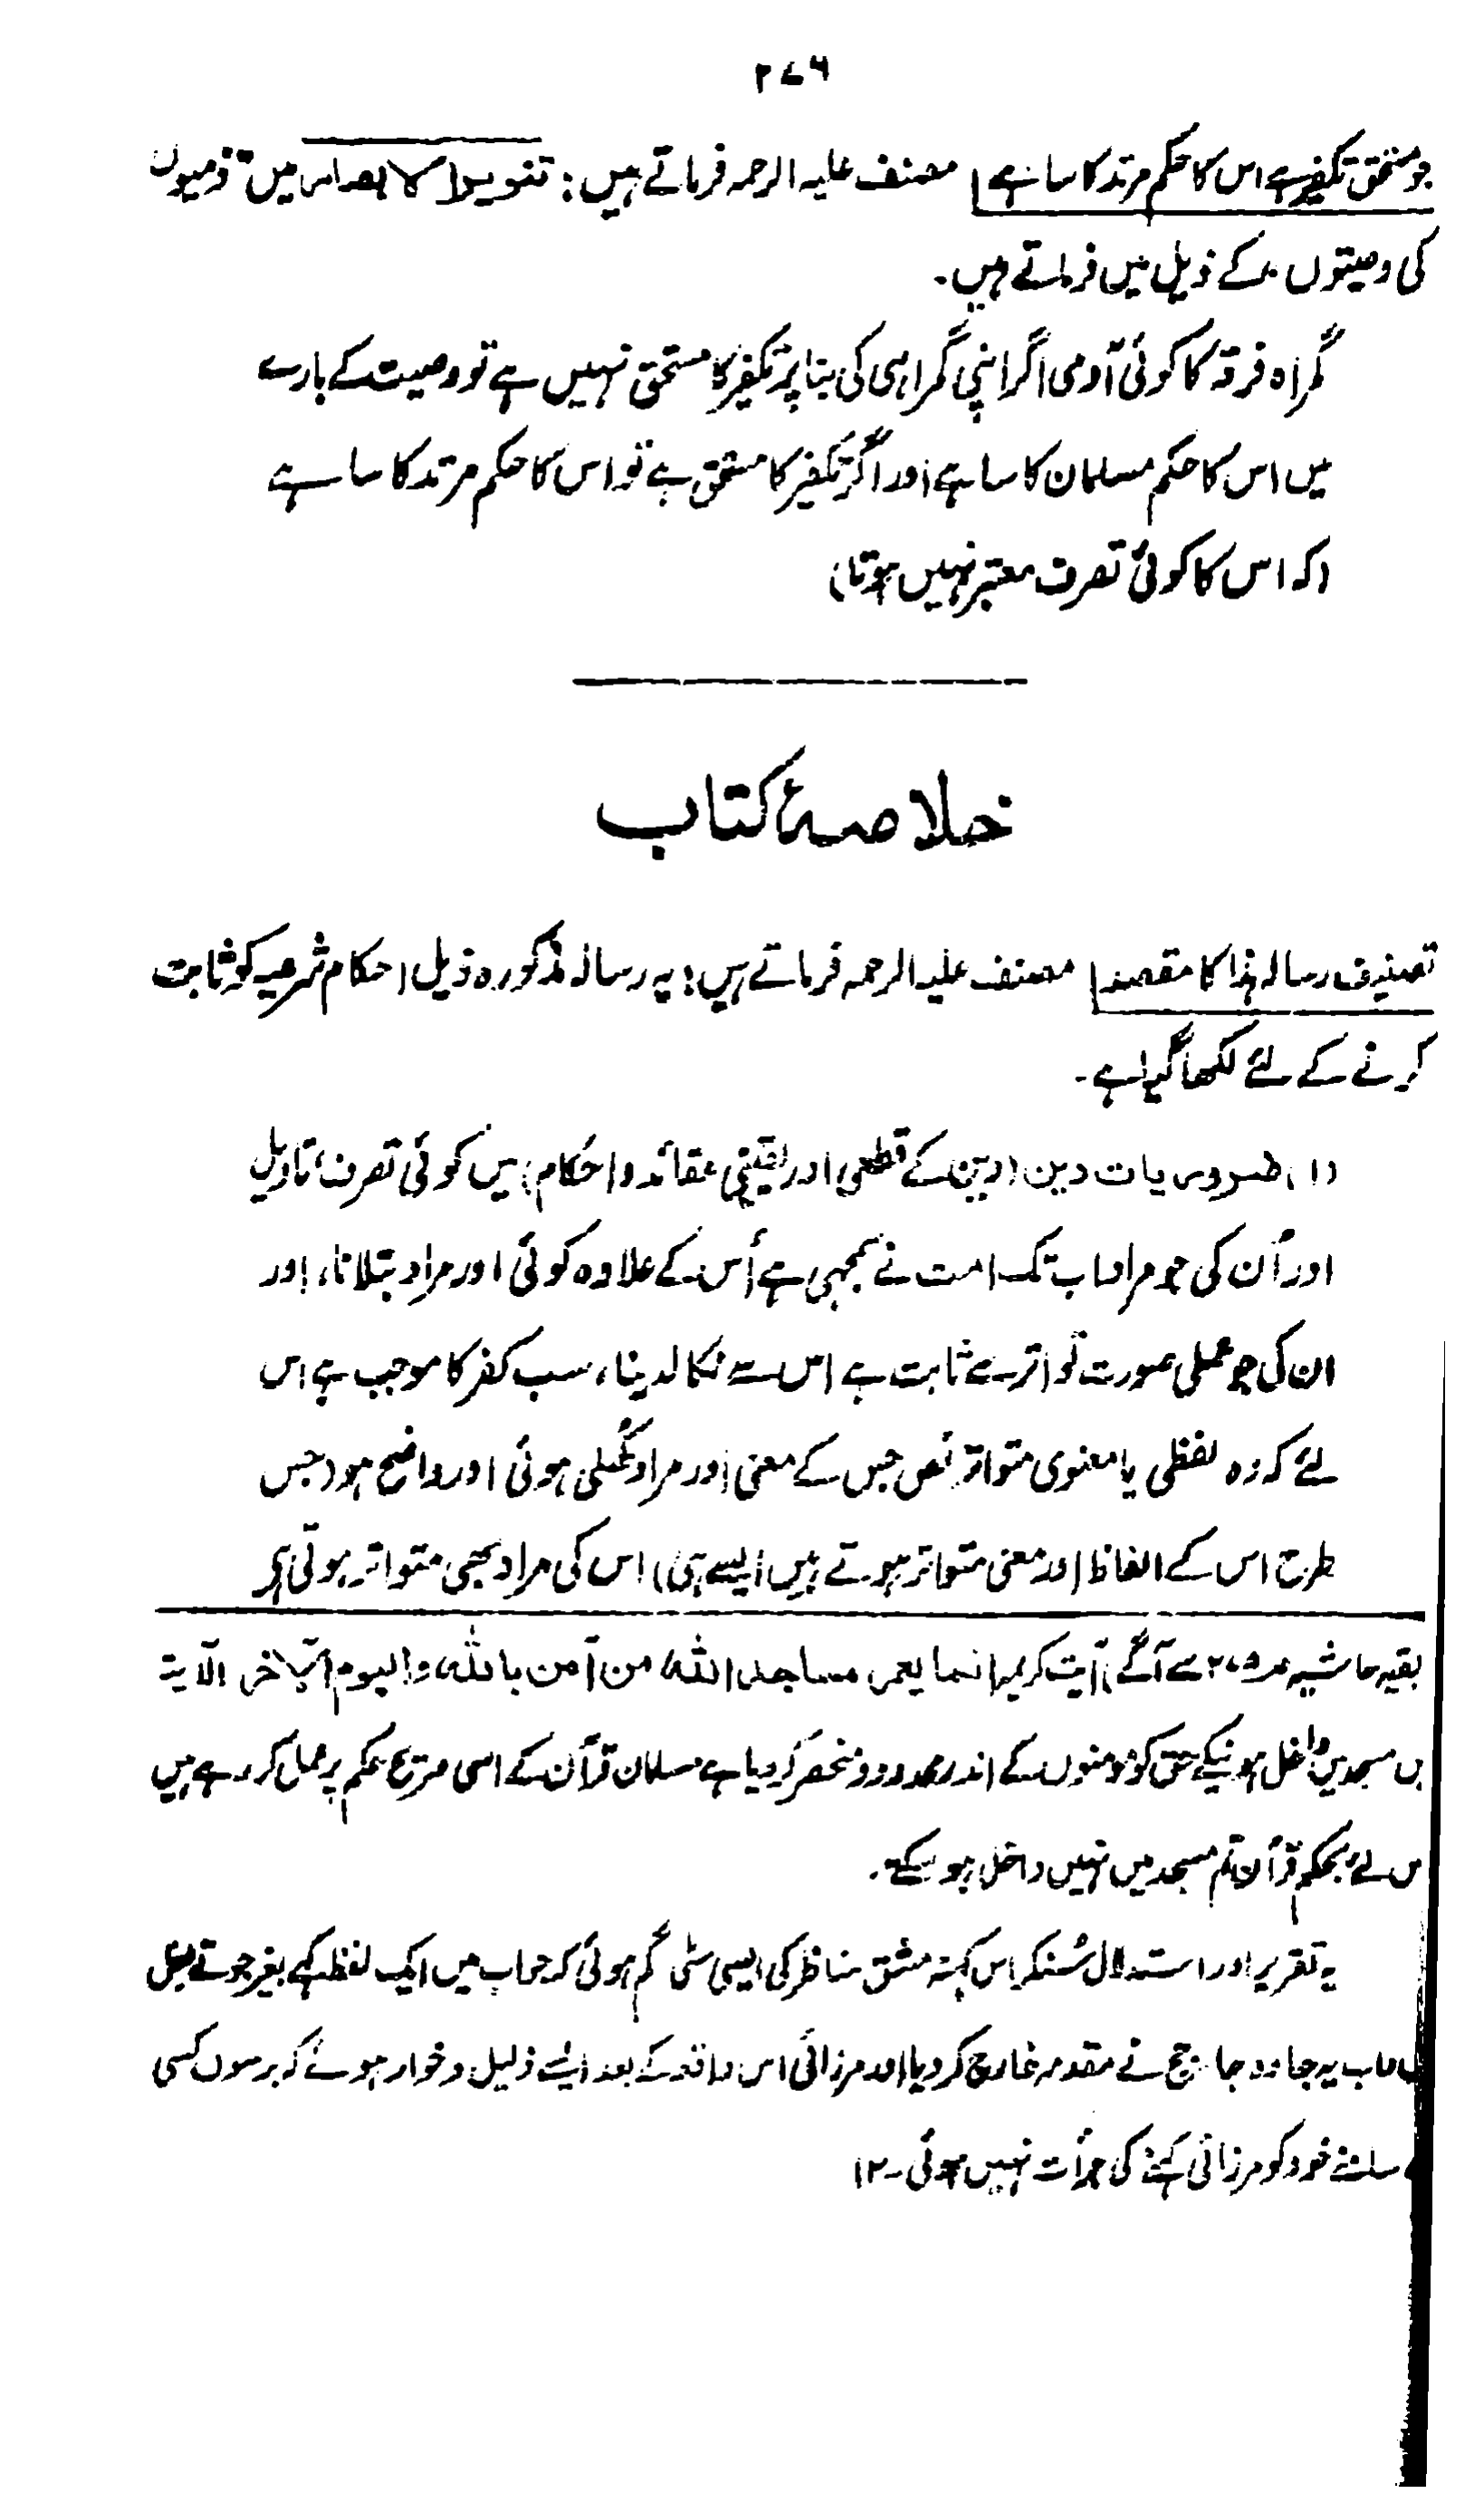 ۲۷۶
جو مستحق تکفیر ہے اس کا حکم مرتد کا سا ہے مصنف علیہ الرحمہ فرماتے ہیں: تنویر الابصار میں "ذمیوں
کی وصیتوں" کے ذیل میں فرماتے ہیں۔
گمراہ فرقہ کا کوئی آدمی اگر اپنی گمراہی کی بنا پر تکفیر کا مستحق نہیں ہے تو وصیت کے بارے
میں اس کا حکم مسلمان کا سا ہے اور اگر تکفیر کا مستحق ہے تو اس کا حکم مرتد کا سا ہے
(کہ اس کا کوئی تصرف معتبر نہیں ہوتا)
خلاصۂ کتاب
تصنیف رسالہ ہذا کا مقصد مصنف علیہ الرحمہ فرماتے ہیں: یہ رسالہ مذکورہ ذیل احکام شرعیہ کو ثابت
کرنے کے لئے لکھا گیا ہے۔
(۱) ضروریات دین (دین کے قطعی اور یقینی عقائد و احکام) میں کوئی تصرف، تاویل
اور اُن کی جو مراد اب تک امت نے سمجھی ہے اُس کے علاوہ کوئی اور مراد بتلانا، اور
ان کی جو عملی صورت تواتر سے ثابت ہے اس سے نکالدینا، سب کفر کا موجب ہے اس
لئے کہ وہ لفظی یا معنوی متواتر نص جس کے معنی اور مراد کُھلی ہوئی اور واضح ہو (جس
طرح اس کے الفاظ اور معنی متواتر ہوتے ہیں ایسے ہی) اس کی مراد بھی متواتر ہوتی ہے
بقیہ حاشیہ ص ۲۷۵ سے آگے) آیت کریمہ انما یعمر مساجد اللہ من آمن باللہ والیوم الآخر الآیۃ
میں مسجد میں داخل ہونیکے حق کو مومنوں کے اندر محدود و منحصر کر دیا ہے مسلمان قرآن کے اسی صریح حکم پر عمل کر رہے ہیں
س لئے بحکم قرآن تم مسجد میں نہیں داخل ہو سکتے۔
یہ تقریر اور استدلال سُنکر اس کہنہ مشق مناظر کی ایسی سٹی گم ہوئی کہ جواب میں ایک لفظ کہے بغیر جوتے بغل
میں داب یہ جا وہ جا۔ جج نے مقدمہ خارج کر دیا اور مرزائی اس واقعہ کے بعد ایسے ذلیل و خوار ہوئے کہ برسوں کسی
کے سامنے خود کو مرزائی کہنے کی جرأت نہیں ہوئی۔ ۱۲